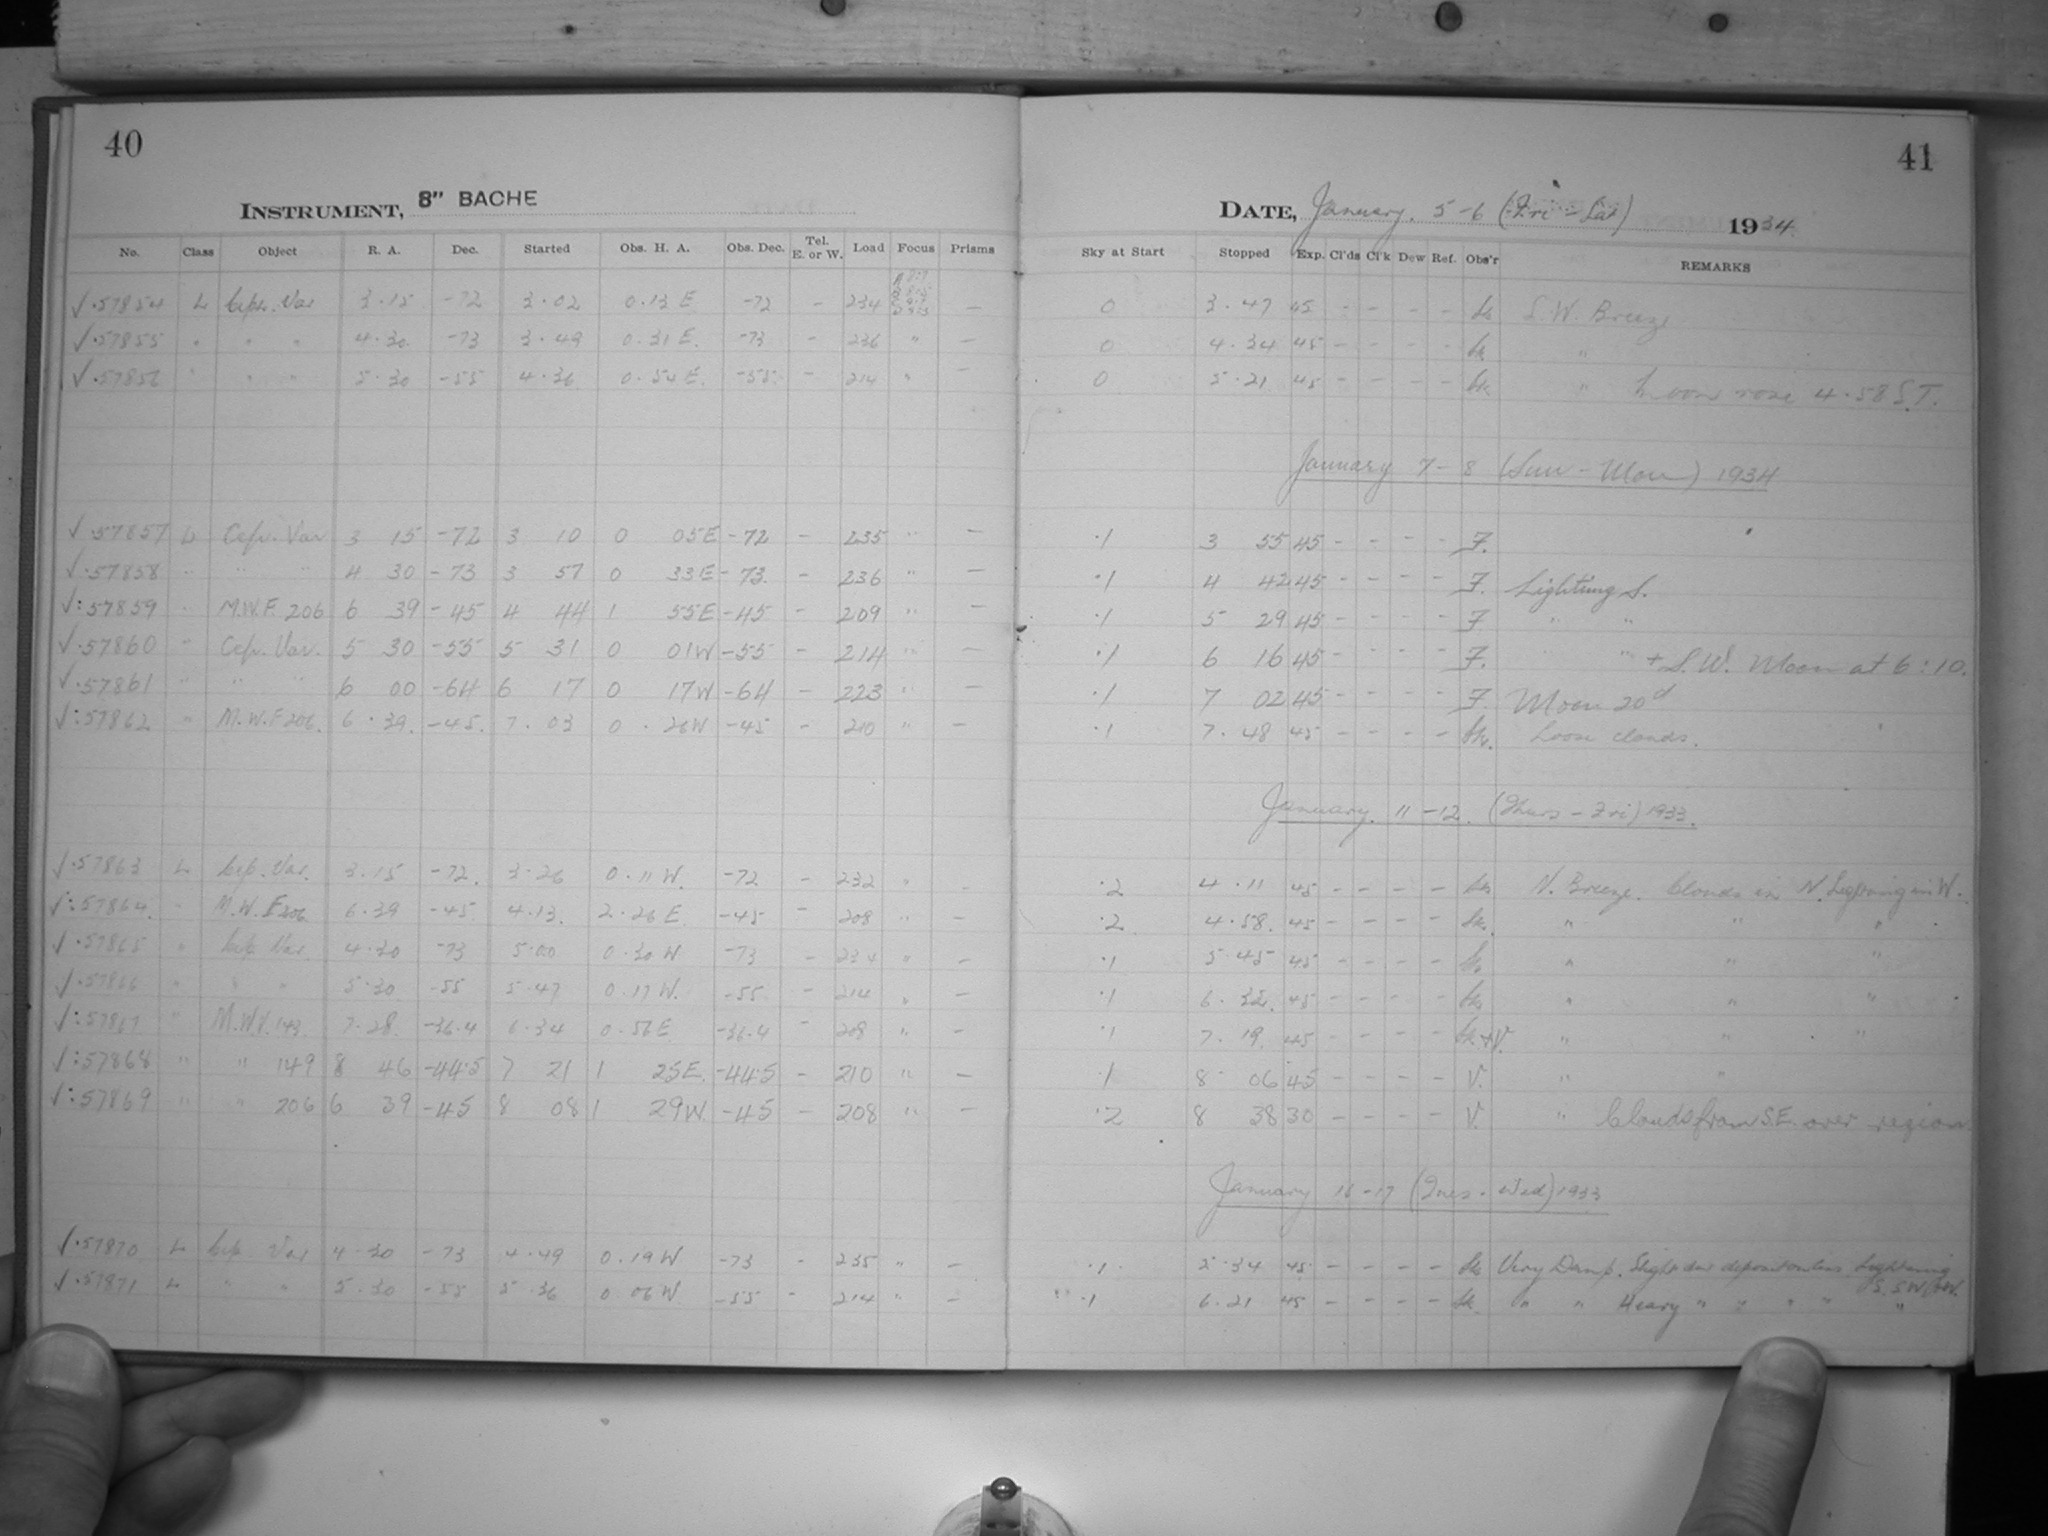 40
INSTRUMENT, 8" BACHE
No. Class Object R. A. Dec. Started Obs. H. A. Obs. Dec. Tel. E. or W. Load Focus Prisms
√·57854 L Cep. Var 3·15 -72 3·02 0·13 E -72 - 234 -
√·57855 " " " 4·30 -73 3·49 0·31 E. -73 - 236 " -
√·57856 " " " 5·30 -55 4·36 0·54 E. -55 - 214 " -
√·57857 L Cep. Var 3 15 -72 3 10 0 05E -72 - 235 " -
√·57858 " " " 4 30 -73 3 57 0 33E -73 - 236 " -
√:57859 " M.W.F. 206 6 39 -45 4 44 1 55E -45 - 209 " -
√·57860 " Cep. Var. 5 30 -55 5 31 0 01W -55 - 214 " -
√·57861 " " " 6 00 -64 6 17 0 17W -64 - 223 " -
√:57862 " M.W.F 206. 6·39. -45. 7·03 0·26W -45 - 210 " -
√·57863 L Cep. Var. 3·15 -72. 3·26 0·11 W. -72 - 232 " -
√:57864 " M.W.F 206 6·39 -45 4·13. 2·26 E -45 - 208 " -
√·57865 " Cep Var. 4·30 -73 5·00 0·30 W -73 - 234 " -
√·57866 " " " 5·30 -55 5·47 0·17 W. -55 - 214 " -
√:57867 " M.W.F. 143 7·28. -36.4 6·34 0·56 E -36.4 - 208 " -
√:57868 " " 149 8 46 -44·5 7 21 1 25E. -44·5 - 210 " -
√:57869 " " 206 6 39 -45 8 08 1 29W -45 - 208 " -
√·57870 L Cep. Var 4·30 -73 4·49 0·19 W -73 - 235 " -
√·57871 L " " 5·30 -55 5·36 0·06 W -55 - 214 " -
41
DATE, January. 5-6 (Fri - Sat) 1934
Sky at Start Stopped Exp. Cl'ds Cl'k Dew Ref. Obs'r REMARKS
0 3·47 45 - - - - S.W. Breeze
0 4·34 45 - - - - "
0 5·21 45 - - - - " Moon rose 4·58 S.T.
January 7-8 (Sun - Mon) 1934
·1 3 55 45 - - - - F.
·1 4 42 45 - - - - F. Lightning S.
·1 5 29 45 - - - - F " "
·1 6 16 45 - - - - F. " + S.W. Moon at 6:10.
·1 7 02 45 - - - - F. Moon 20d
·1 7·48 45 - - - - Loose clouds.
January. 11-12. (Thurs - Fri) 1933.
·2 4·11 45 - - - - N. Breeze. Clouds in N. Lightning in W.
·2 4·58. 45 - - - - " " "
·1 5·45 45 - - - - " " "
·1 6·32. 45 - - - - " " "
·1 7·19. 45 - - - - " " "
·1 8 06 45 - - - - V. " "
·2 8 38 30 - - - - V. " Clouds from S.E. over region
January 16-17 (Tues - Wed) 1933
·1 5·34 45 - - - - Very Damp. Slight dew deposit on lens Lightning
S. SW + W.
·1 6·21 45 - - - - " " Heavy " " " " "